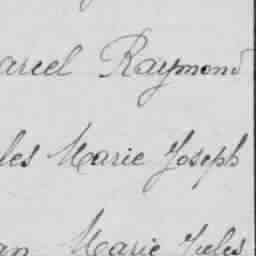 arcel Raymond
les Marie Joseph
an Marie Jules